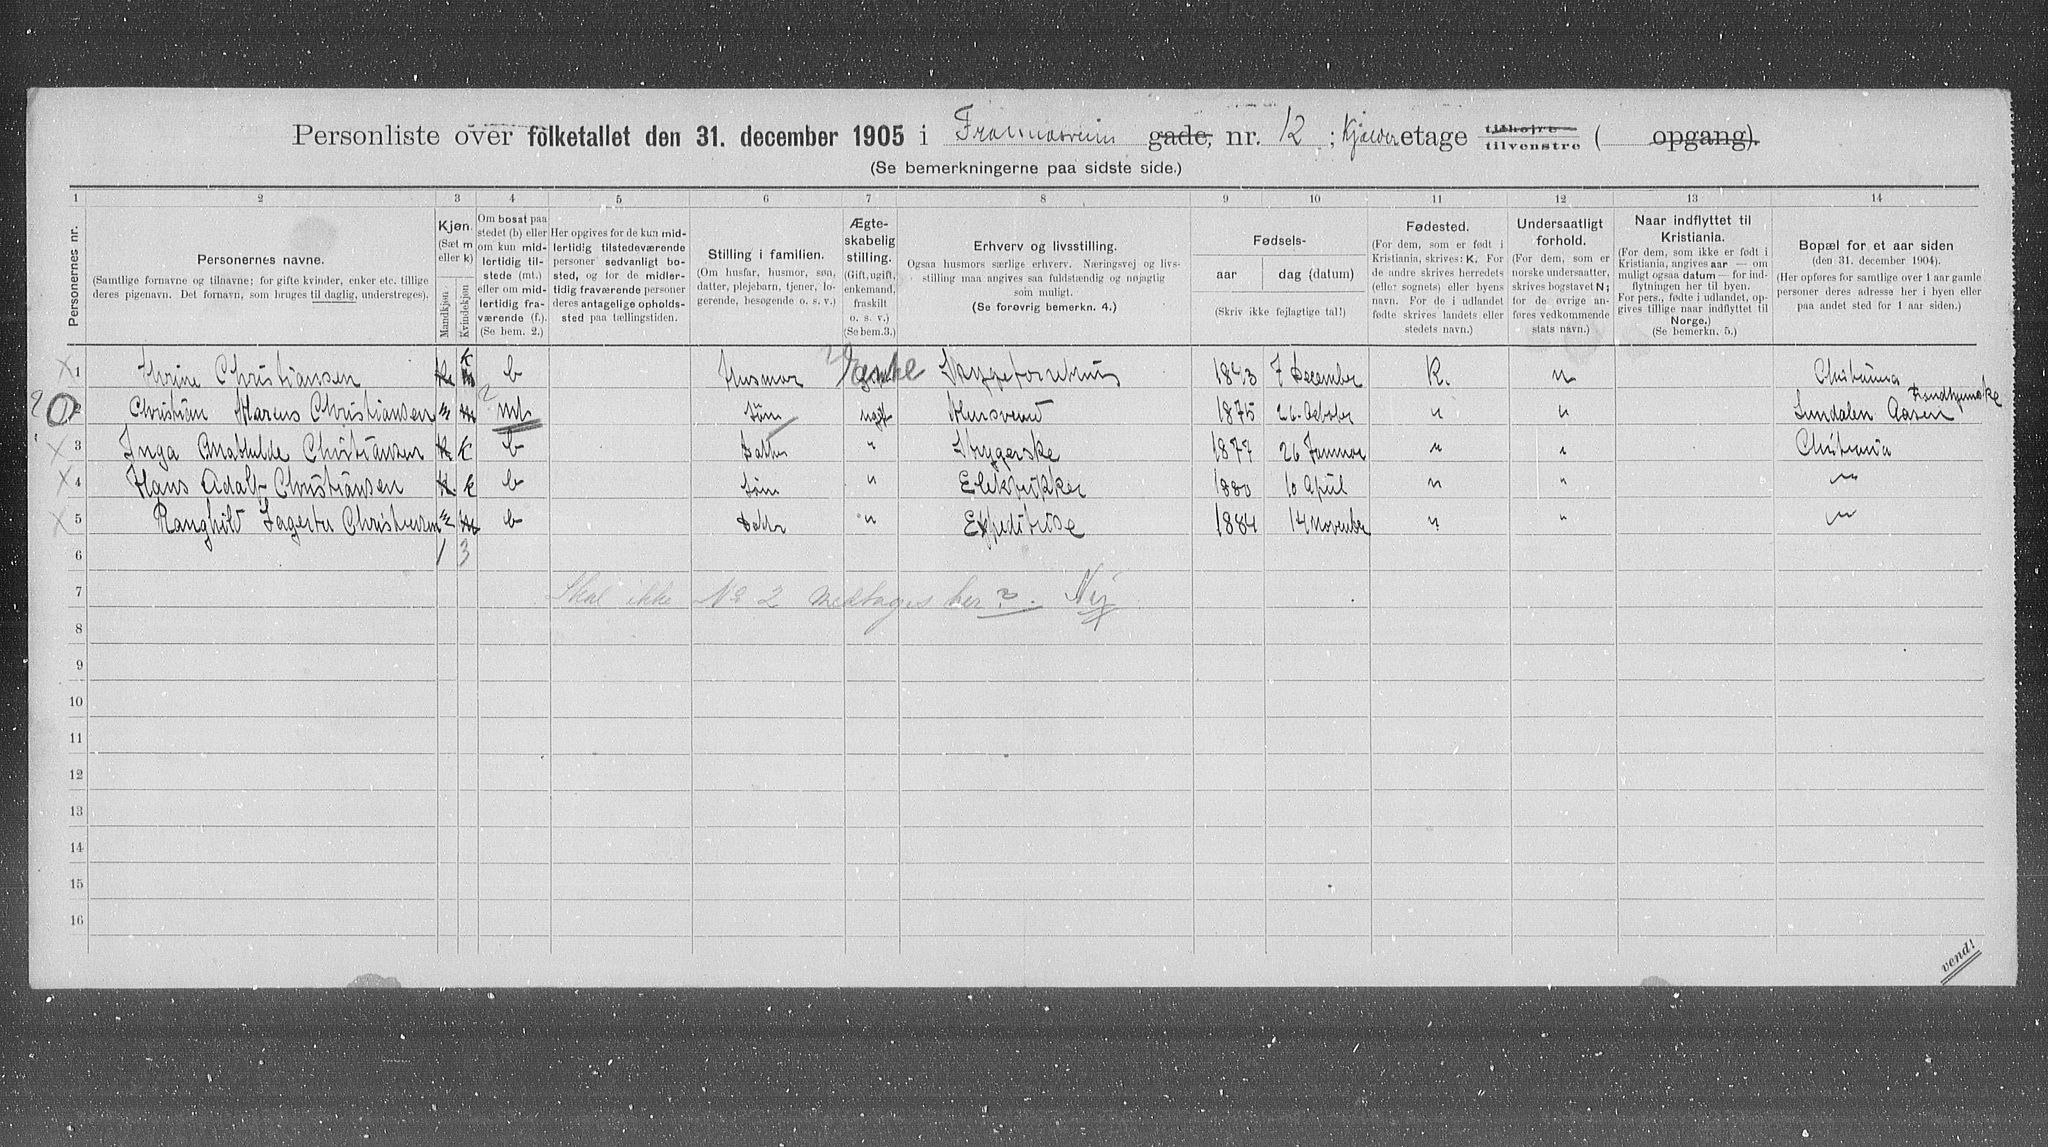 Personliste over folketallet den 31. december 1905 i gade, nr. 12 ; Kjælder etage tilhøjre tilvenstre ( opgang).
(Se bemerkningerne paa sidste side.)
1 2 3 4 5 6 7 8 9 10 11 12 13 14
Personernes nr.
Personernes navne.
(Samtlige fornavne og tilnavne; for gifte kvinder, enker etc. tillige
deres pigenavn. Det fornavn, som bruges til daglig, understreges).
Kjøn.
(Sæt m
eller k)
Mandkjøn.
Kvindekjøn
Om bosat paa
stedet (b) eller
om kun mid-
lertidig til-
stede (mt.)
eller om mid-
lertidig fra-
værende (f.).
(Se bem. 2.)
Her opgives for de kun mid-
lertidig tilstedeværende
personer sedvanligt bo-
sted, og for de midler-
tidig fraværende personer
deres antagelige opholds-
sted paa tællingstiden.
Stilling i familien.
(Om husfar, husmor, søn,
datter, plejebarn, tjener, lo-
gerende, besøgende o. s. v.)
Ægte-
skabelig
stilling.
(Gift, ugift,
enkemand,
fraskilt
o. s. v.)
(Se bem.3.)
Erhverv og livsstilling.
Ogsaa husmors særlige erhverv. Næringsvej og livs-
stilling maa angives saa fuldstændig og nøjagtig
som muligt.
(Se forøvrig bemerkn. 4.)
Fødsels-
aar dag (datum)
(Skriv ikke fejlagtige tal!)
Fødested.
(For dem, som er født i
Kristiania, skrives: K. For
de andre skrives herredets
(eller sognets) eller byens
navn. For de i udlandet
fødte skrives landets eller
stedets navn.)
Undersaatligt
forhold.
(For dem, som er
norske undersaatter,
skrives bogstavet N;
for de øvrige an-
føres vedkommende
stats navn.)
Naar indflyttet til
Kristiania.
(For dem, som ikke er født i
Kristiania, angives aar — om
muligt ogsaa datum — for ind-
flytningen her til byen.
For pers., fødte i udlandet, op-
gives tillige naar indflyttet til
Norge.)
(Se bemerkn. 5.)
Bopæl for et aar siden
(den 31. december 1904).
(Her opføres for samtlige over 1 aar gamle
personer deres adresse her i byen eller
paa andet sted for 1 aar siden.)
1 Christiansen k b Husmor 1843 7 December K. "
2 Christian Marcus Christiansen m mt Søn ugift 1875 26. October " " Sundalen
3 Inga Christiansen k b Datter " Strygerske 1877 26 Januar " " Christiania
4 Hans Adolf Christiansen k b Søn " 1880 10 April " " "
5 Christiansen m b Datter " Expeditrise 1884 14 November " " "
6 1 3
7 Skal ikke No 2 medtages her? Nej
8
9
10
11
12
13
14
15
16
vend!